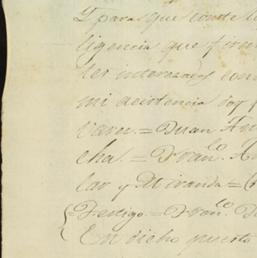 Y para que conste l
ligencia que firm
los interezados con
mi asistencia doy f
varu.= Juan An
cha.= Fran.co A
lar y Miranda= (
Testigo.= Fran.co D
En dicho puerto